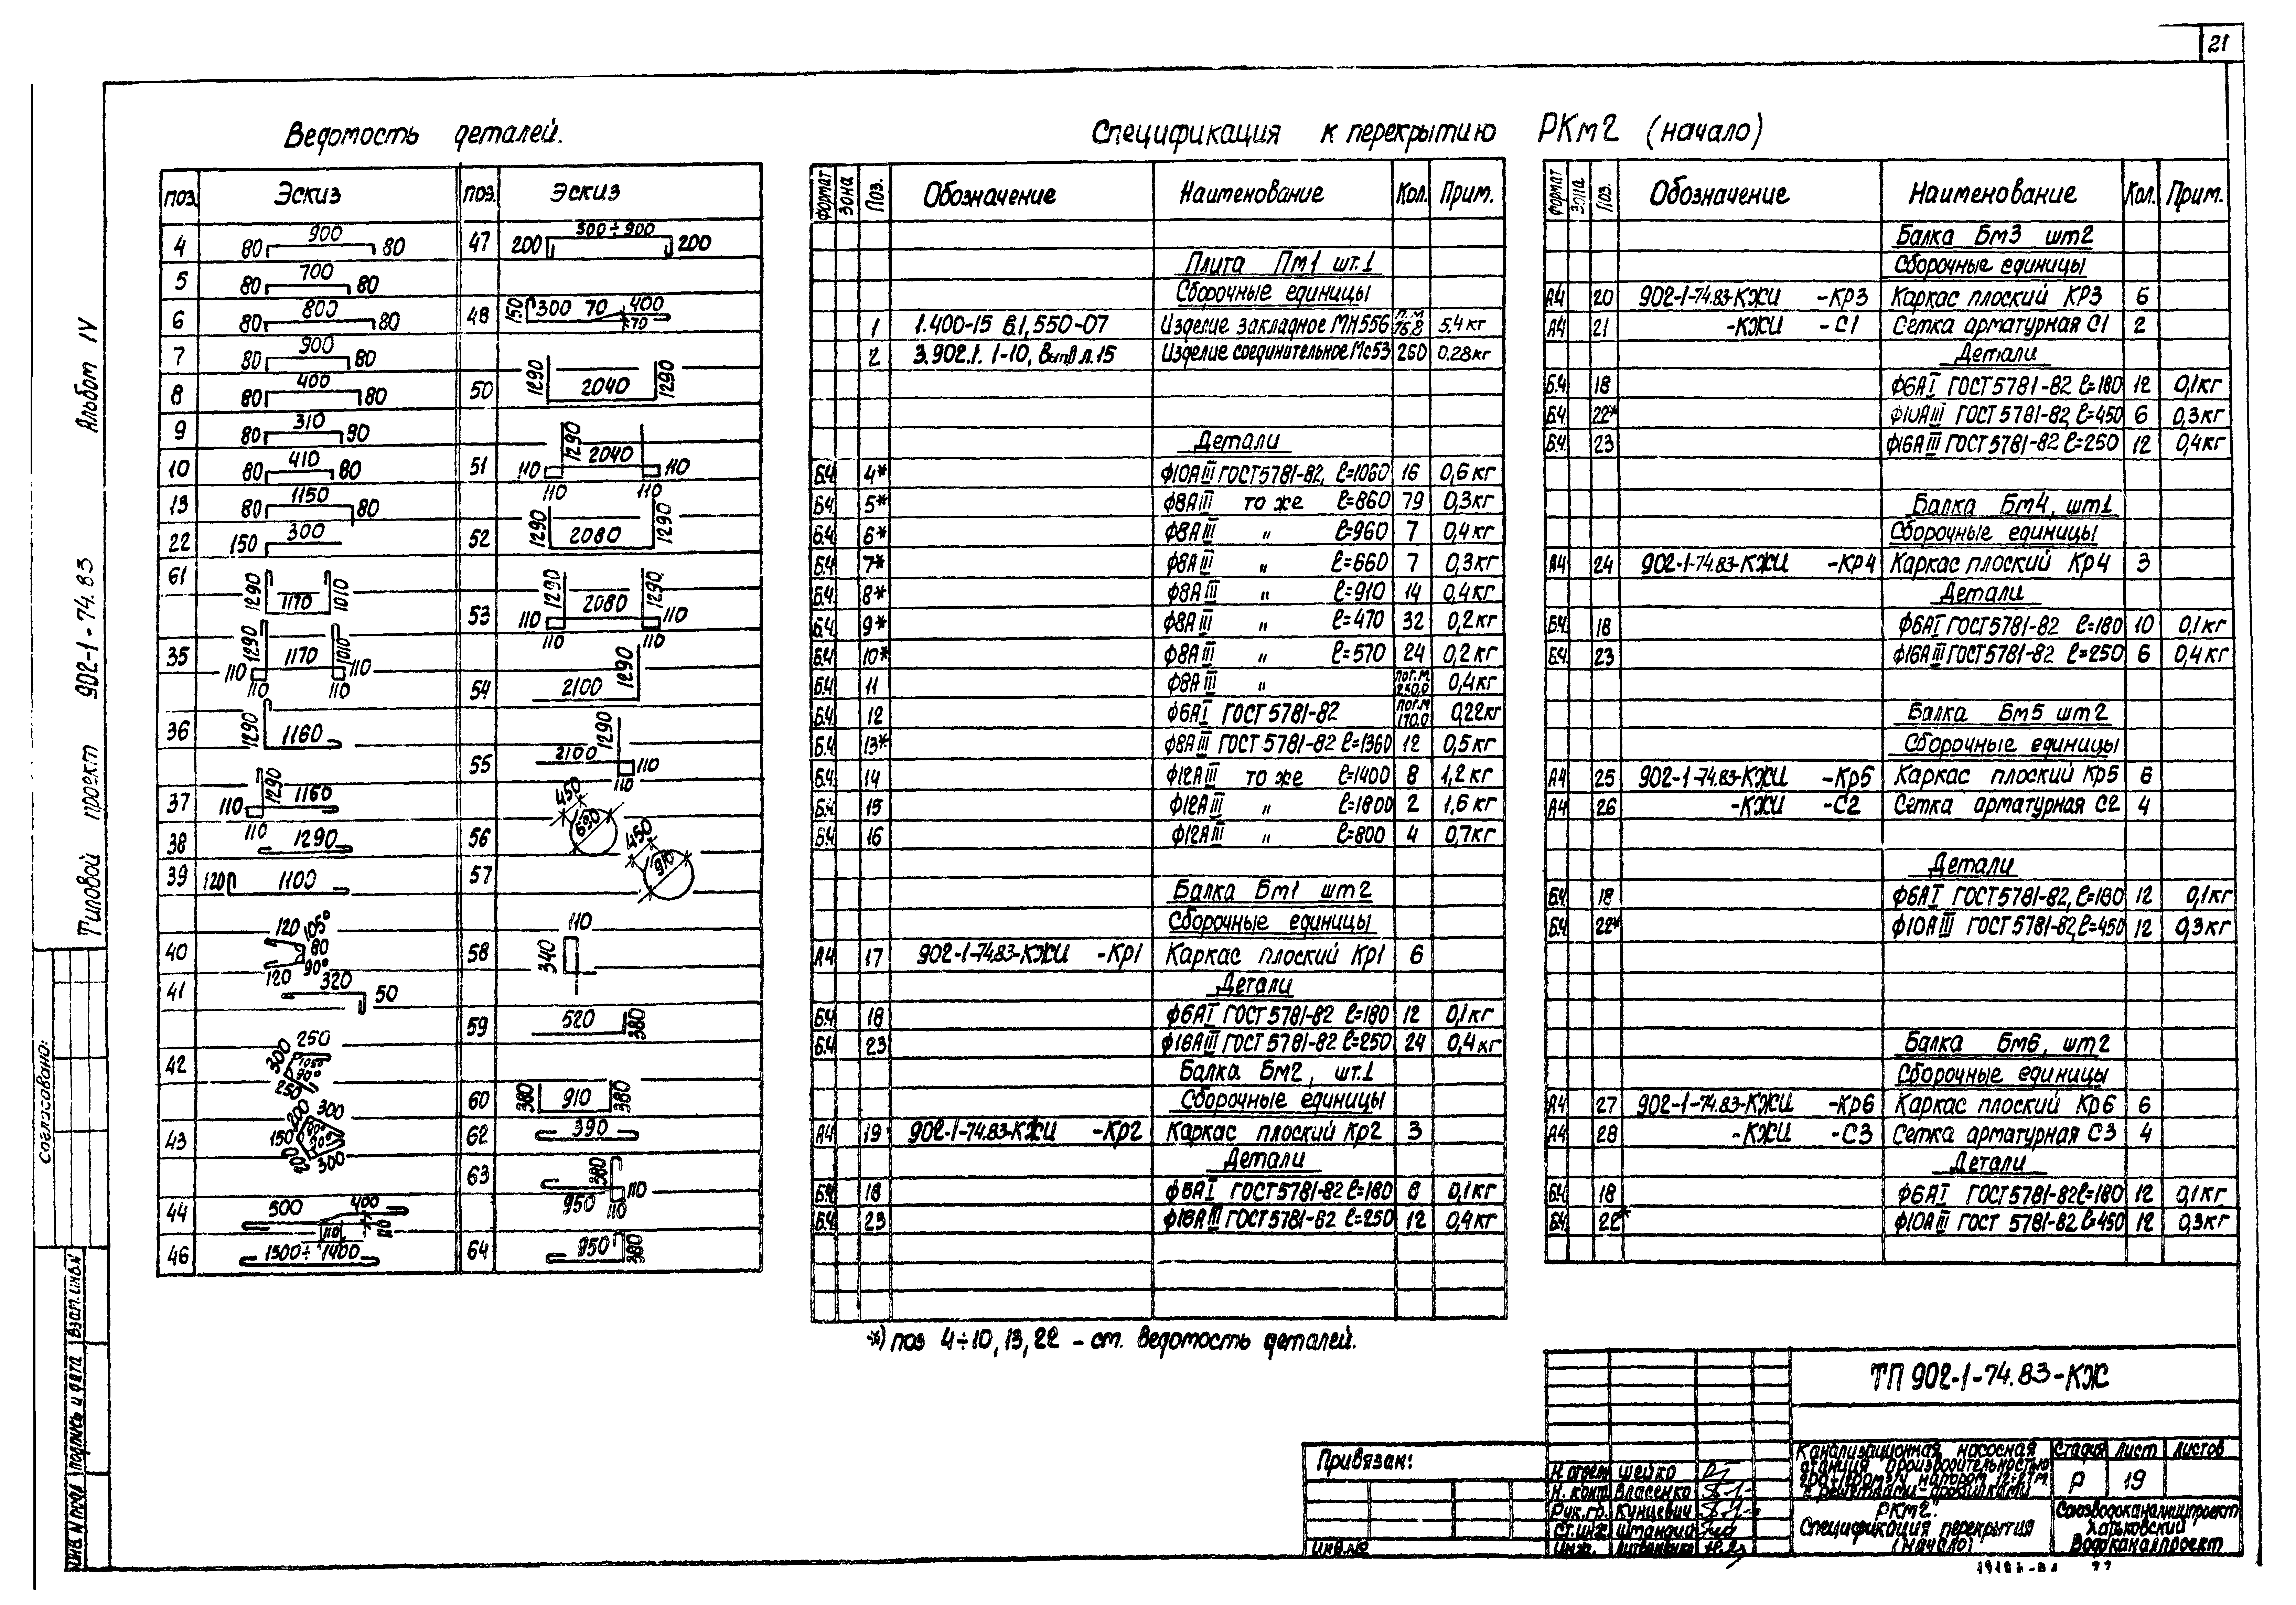 21
Альбот IV
Типовой проект 902-1-74.83
Согласовано:
Взат.инв.N
Подпись и дата
Инв. N подл
Ведотость деталей.
поз. Эскиз поз. Эскиз
4 80 900 80
5 80 700 80
6 80 800 80
7 80 900 80
8 80 400 80
9 80 310 90
10 80 410 80
13 80 1150 80
22 150 300
61 1290 1170 1010
35 1290 1170 1010 110 110 110 110
36 1290 1160
37 110 1290 1160 110
38 1290
39 120 1100
40 120 105° 80 90° 120
41 320 50
42 250 300 105° 90° 250
43 200 300 150 200 300
44 500 400 110 110
46 1500÷1400
47 200 500÷900 200
48 150 300 70 400 70
50 1290 2040 1290
51 1290 2040 110 110 110 110
52 1290 2080 1290
53 1290 2080 1290 110 110 110 110
54 2100 1290
55 2100 1290 110 110
56 450 690
57 450 910
58 110 340
59 520 380
60 380 910 380
62 390
63 380 950 110 110
64 950 380
Спецификация к перекрытию РКм2 (начало)
формат зона Поз. Обозначение Наитенование Кол. Прит.
Плита Пм1 шт.1
Сборочные единицы
1 1.400-15 В.1, 550-07 Изделие закладное МН556 п.м 75.8 5.4 кг
2 3.902.1. 1-10, вып0 л.15 Изделие соединительное Мс53 260 0,28кг
Детали
Б.Ч. 4* Ф10АIII ГОСТ5781-82, ℓ=1060 16 0,6 кг
Б.Ч. 5* Ф8АIII то же ℓ=860 79 0,3кг
Б.Ч. 6* Ф8АIII " ℓ=960 7 0,4кг
Б.Ч. 7* Ф8АIII " ℓ=660 7 0,3кг
Б.Ч. 8* Ф8АIII " ℓ=910 14 0,4кг
Б.Ч. 9* Ф8АIII " ℓ=470 32 0,2кг
Б.Ч. 10* Ф8АIII " ℓ=570 24 0,2 кг
Б.Ч. 11 Ф8АIII " пог.м 250,0 0,4кг
Б.Ч. 12 Ф6АI ГОСТ 5781-82 пог.м 170.0 0,22кг
Б.Ч. 13* Ф8АIII ГОСТ 5781-82 ℓ=1360 12 0,5кг
Б.Ч. 14 Ф12АIII то же ℓ=1400 8 1,2 кг
Б.Ч. 15 Ф12АIII " ℓ=1800 2 1,6 кг
Б.Ч. 16 Ф12АIII " ℓ=800 4 0,7кг
Балка Бм1 шт2
Сборочные единицы
А4 17 902-1-74.83-КЖИ -Кр1 Каркас плоский Кр1 6
Детали
Б.Ч. 18 Ф6АI ГОСТ 5781-82 ℓ=180 12 0,1кг
Б.Ч. 23 Ф16АIII ГОСТ 5781-82 ℓ=250 24 0,4кг
Балка Бм2, шт.1
Сборочные единицы
А4 19 902-1-74.83-КЖИ -Кр2 Каркас плоский Кр2 3
Детали
Б.Ч. 18 Ф6АI ГОСТ 5781-82 ℓ=180 8 0,1кг
Б.Ч. 23 Ф16АIII ГОСТ 5781-82 ℓ=250 12 0,4кг
*) поз 4÷10, 13, 22 - ст. ведотость деталей.
формат зона Поз. Обозначение Наитенование Кол. Прит.
Балка Бм3 шт2
Сборочные единицы
А4 20 902-1-74.83-КЖИ -КР3 Каркас плоский КР3 6
А4 21 -КЖИ -С1 Сетка арматурная С1 2
Детали
Б.Ч. 18 Ф6АI ГОСТ5781-82 ℓ=180 12 0,1кг
Б.Ч. 22* Ф10АIII ГОСТ 5781-82, ℓ=450 6 0,3кг
Б.Ч. 23 Ф16АIII ГОСТ5781-82 ℓ=250 12 0,4кг
Балка Бм4, шт1
Сборочные единицы
А4 24 902-1-74.83-КЖИ -Кр4 Каркас плоский Кр4 3
Детали
Б.Ч. 18 Ф6АI ГОСТ5781-82 ℓ=180 10 0,1кг
Б.Ч. 23 Ф16АIII ГОСТ5781-82 ℓ=250 6 0,4кг
Балка Бм5 шт2
Сборочные единицы
А4 25 902-1-74.83-КЖИ -Кр5 Каркас плоский Кр5 6
А4 26 -КЖИ -С2 Сетка арматурная С2 4
Детали
Б.Ч. 18 Ф6АI ГОСТ5781-82, ℓ=180 12 0,1кг
Б.Ч. 22* Ф10АIII ГОСТ5781-82, ℓ=450 12 0,3кг
Балка Бм6, шт2
Сборочные единицы
А4 27 902-1-74.83-КЖИ -Кр6 Каркас плоский Кр6 6
А4 28 -КЖИ -С3 Сетка арматурная С3 4
Детали
Б.Ч. 18 Ф6АI ГОСТ5781-82 ℓ=180 12 0,1кг
Б.Ч. 22* Ф10АIII ГОСТ 5781-82 ℓ=450 12 0,3кг
ТП 902-1-74.83-КЖ
Привязан:
Инв.№
Н. отдел Шейко
Н. конт. Власенко
Рук. гр. Кунцевич
Ст.инж. Штандий
Инж. Литвиненко
Канализационная насосная
станция производительностью
напором 12÷27м
с решетками-дробилками
Стадия Лист Листов
Р 19
РКм2.
Спецификация перекрытия
(начало)
Союзводоканалниипроект
Харьковский
Водоканалпроект